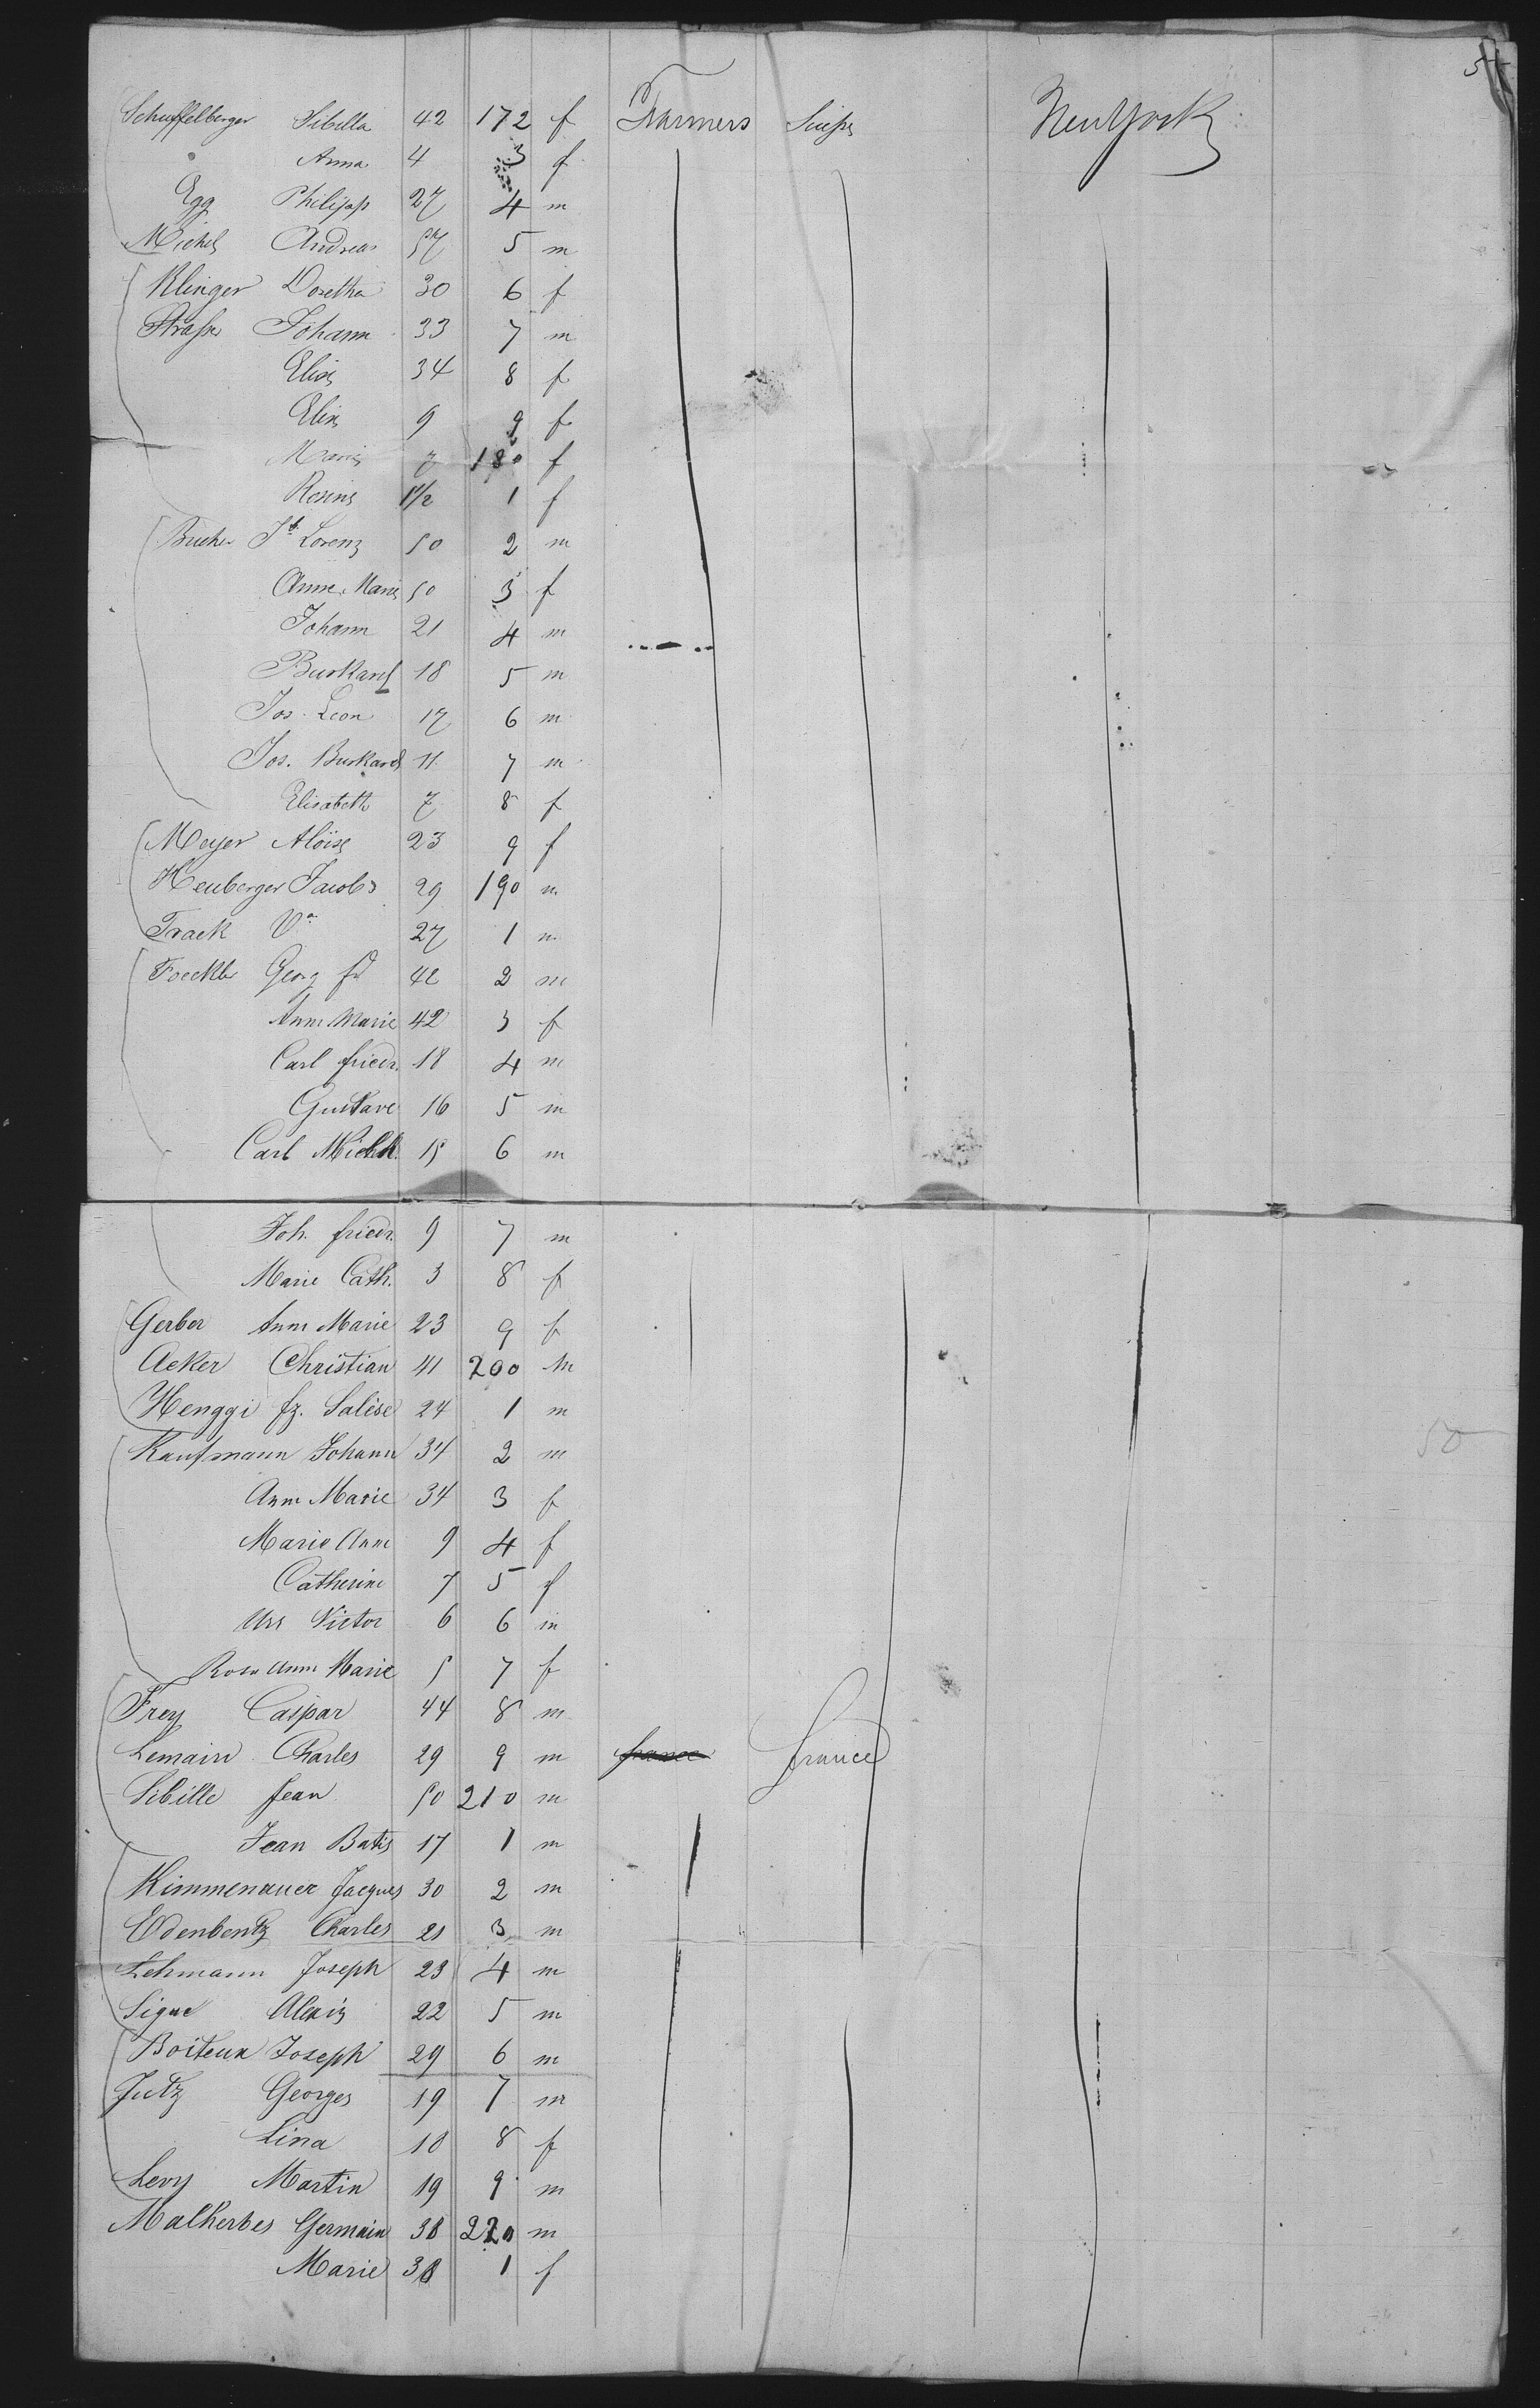 5
Schuffelberger Sibilla 42 172 f Farmers Suisse New York
" Anna 4 3 f
Egg Philipp 27 4 m
Michel Andreas 57 5 m
Klinger Dorethea 30 6 f
Strasser Johann 33 7 m
Elise 34 8 f
Elise 9 9 f
Marie 7 180 f
Rosine 1½ 1 f
Bucher Jb Lorenz 50 2 m
Anne Marie 50 3 f
Johann 21 4 m
Burkard 18 5 m
Jos. Leon 17 6 m
Jos. Burkard 11 7 m
Elisabeth 7 8 f
Meyer Aloïse 23 9 f
Heuberger Jacob 29 190 m
Traek Vr 27 1 m
Foeckle Georg fd 42 2 m
Anne Marie 42 3 f
Carl friedr. 18 4 m
Gustave 16 5 m
Carl Michl. 15 6 m
Joh. friedr. 9 7 m
Marie Cath. 3 8 f
Gerber Anne Marie 23 9 f
Acker Christian 41 200 m
Henggi fz. Salise 24 1 m
Kaufmann Johann 34 2 m
Anne Marie 34 3 f
Marie Anne 9 4 f
Catherine 7 5 f
Urs Victor 6 6 m
Rosa Anne Marie 5 7 f
Frey Caspar 44 8 m
Lemaire Charles 29 9 m france france
Sibille Jean 50 210 m
Jean Batis 17 1 m
Kimmenauer Jacques 30 2 m
Edenbentz Charles 21 3 m
Lehmann Joseph 23 4 m
Sigue Alexis 22 5 m
Boiteux Joseph 29 6 m
Jutz Georges 19 7 m
Lina 18 8 f
Levy Martin 19 9 m
Malherbes Germain 38 220 m
Marie 38 1 f
50